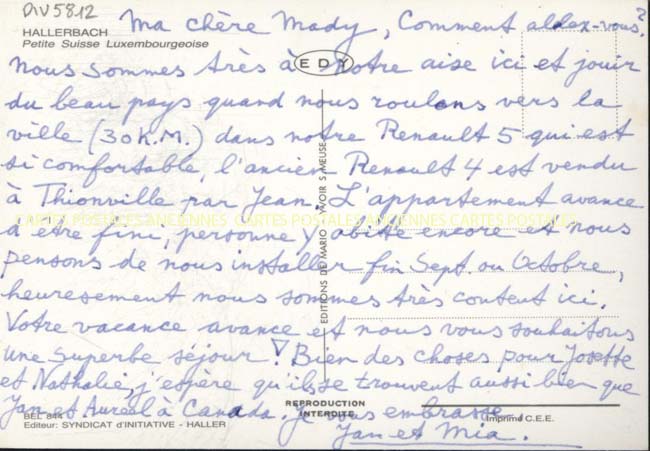 DIV5812
HALLERBACH
Petite Suisse Luxembourgeoise
Ma chère Mady, Comment aldez-vous?
EDY
nous sommes très à notre aise ici et jouir
du beau pays quand nous roulons vers la
ville (30 K.M.) dans notre Renault 5 qui est
si comfortable, l'ancien Renault 4 est vendu
à Thionville par Jean. L'appartement avance
CARTES POSTALES ANCIENNES CARTES POSTALES ANCIENNES CARTES POSTALES
à être fini, personne y abitte encore et nous
pensons de nous installer fin Sept. ou Octobre,
heuresement nous sommes très content ici.
Votre vacance avance et nous vous souhaitons
une superbe séjour! Bien des choses pour Josette
et Nathalie, j'espère qu'ils se trouvent aussi bien que
Jan et Aureal à Canada. je vous embrasse,
Jan et Mia.
EDITIONS DE MARIO SAVOIR S/MEUSE
BEL 844
Editeur: SYNDICAT d'INITIATIVE - HALLER
REPRODUCTION
INTERDITE
Imprimé C.E.E.